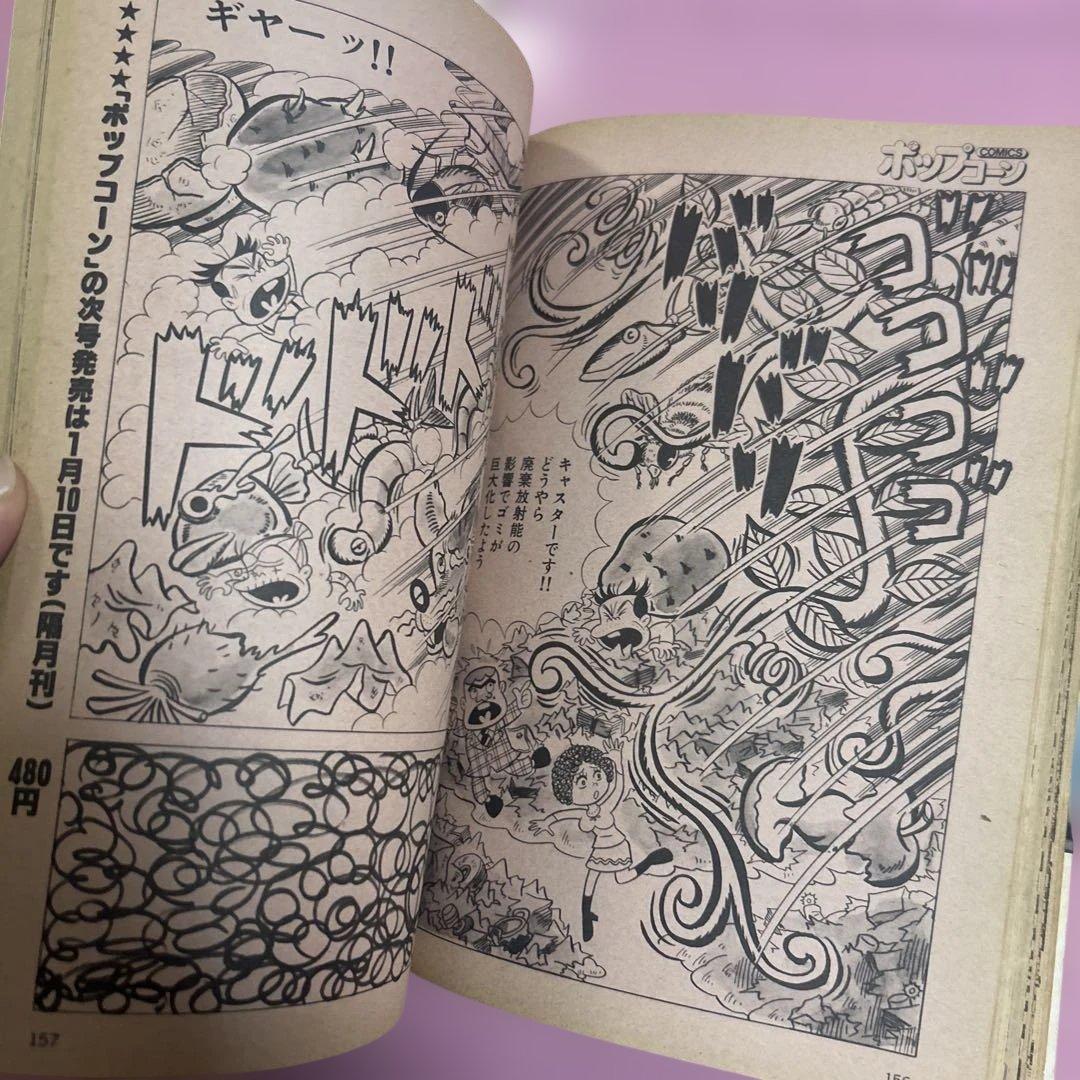 ポップコーン
COMICS
ゴゴゴゴ
キャスターです!!
どうやら
廃棄放射能の
影響でゴミが
巨大化したよう
ギャーッ!!
ドドド
★★★★「ポップコーン」の次号発売は1月10日です(隔月刊)
480円
157